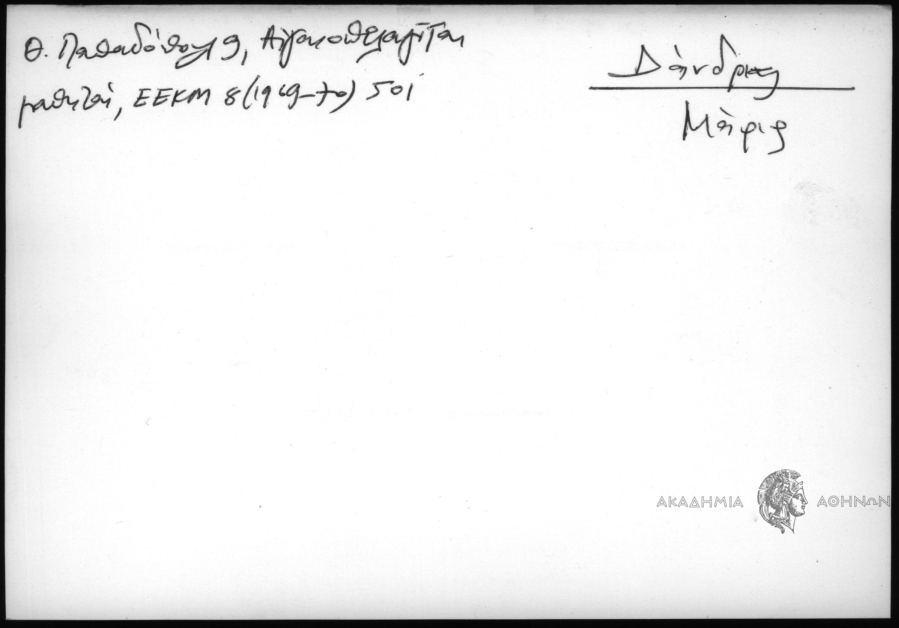 Θ. Παπαδόπουλος, Αἰγαιοπελαγῖται
μαθηταί, ΕΕΚΜ 8 (1969-70) 501
Δάνδριας
Μάρις
ΑΚΑΔΗΜΙΑ ΑΘΗΝΩΝ